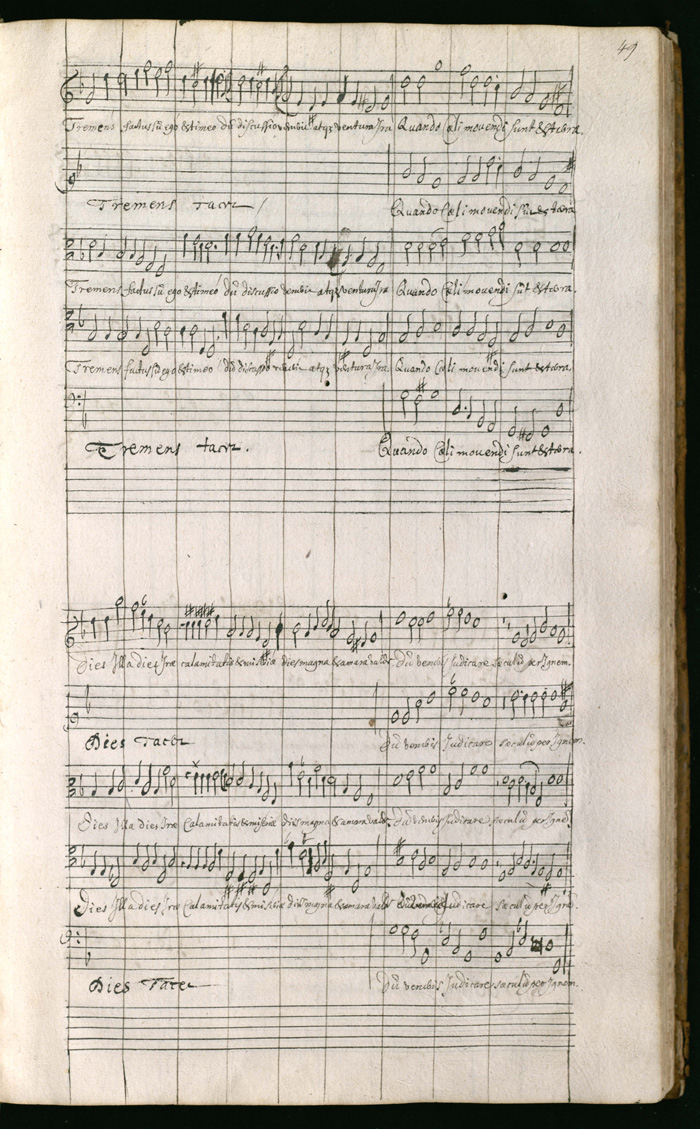 49
Tremens factus sū ego & timeo dū discussio venerit atqȝ ventura Ira Quando Cæli movendi sunt & tæra.
Tremens tacet Quando Cæli movendi sūt & tæra
Tremens factus sū ego & timeo dū discussio venerit atqȝ ventura Ira Quando Cæli movendi sūt & tæra.
Tremens factus sū ego & timeo dū discussio venerit atqȝ ventura Ira. Quando Cæli movendi sunt & tæra.
Tremens tacet. Quando Cæli movendi sunt & tæra.
Dies Illa dies Iræ calamitatis & miseriæ dies magna & amara valde. Dū veneris Iudicare sæculū per Ignem.
Dies Tacet Dū veneris Iudicare sæculū per Ignem.
Dies Illa dies Iræ Calamitatis & miseriæ dies magna & amara valde. Dū veneris Iudicare sæculū per Ignē.
Dies Illa dies Iræ Calamitatis & miseriæ dies magna & amara valde Iudicare sæculū per Ignē.
Dies Tacet Dū veneris Iudicare sæculū per Ignem.